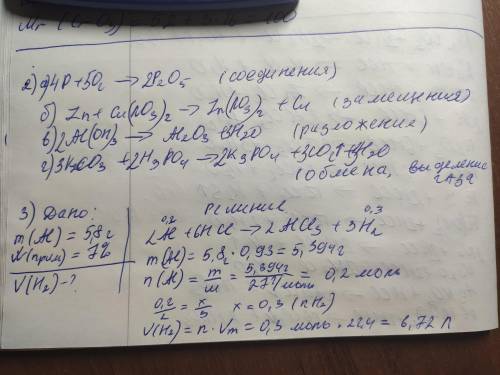 Mr (CrO3) = 52 + 3 · 16 = 100
2) а) 4P + 5O2 → 2P2O5 (соединения)
б) Zn + Cu(NO3)2 → Zn(NO3)2 + Cu (замещения)
в) 2Al(OH)3 → Al2O3 + 3H2O (разложение)
г) 3K2CO3 + 2H3PO4 → 2K3PO4 + 3CO2↑ + 3H2O
(обмена, выделение газа
3) Дано: Решение
0,2 0,3
m(Al) = 5,8 г 2Al + 6HCl → 2AlCl3 + 3H2
w(прим) = 7% m(Al) = 5,8 · 0,93 = 5,394 г
V(H2) - ? n(Al) = m/M = 5,394 г / 27 г/моль = 0,2 моль
0,2/2 = x/3 x = 0,3 (nH2)
V(H2) = n · Vm = 0,3 моль · 22,4 = 6,72 л